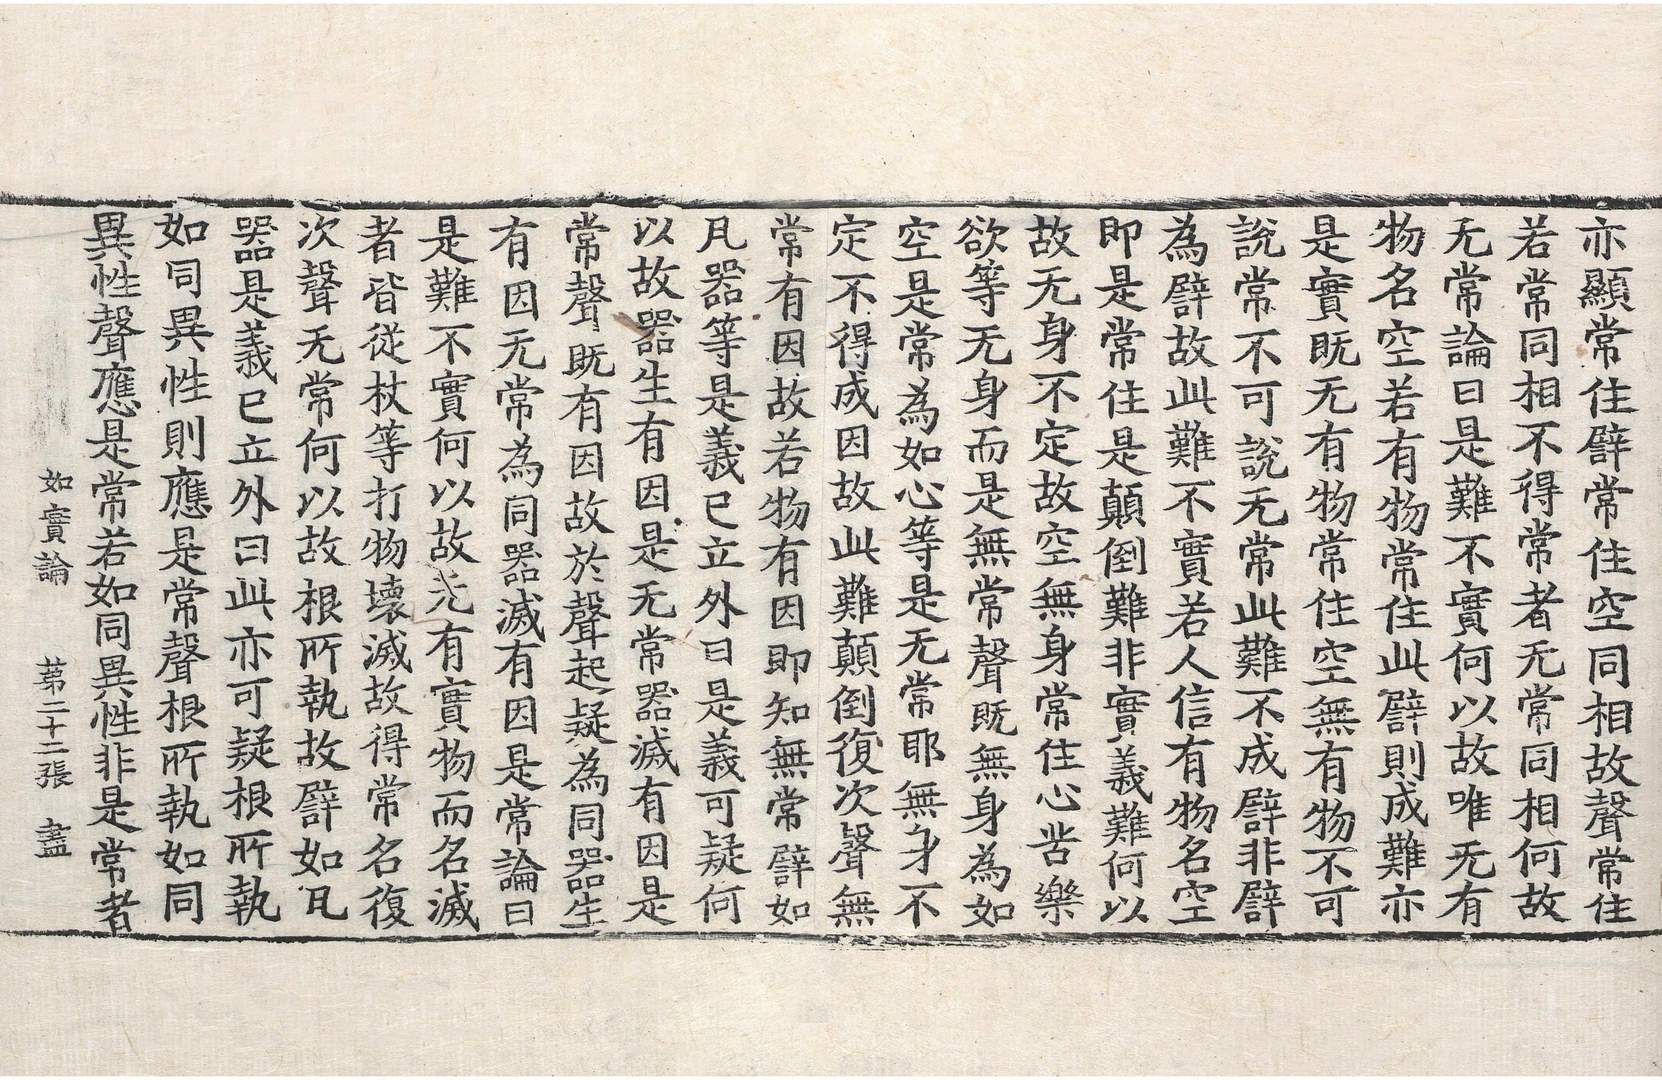 亦顯常住譬常住空同相故聲常住
若常同相不得常者无常同相何故
无常論曰是難不實何以故唯无有
物名空若有物常住此譬則成難亦
是實既无有物常住空無有物不可
說常不可說无常此難不成譬非譬
為譬故此難不實若人信有物名空
即是常住是顛倒難非實義難何以
故无身不定故空無身常住心苦樂
欲等无身而是無常聲既無身為如
空是常為如心等是无常耶無身不
定不得成因故此難顛倒復次聲無
常有因故若物有因即知無常譬如
凡器等是義已立外曰是義可疑何
以故器生有因是无常器滅有因是
常聲既有因故於聲起疑為同器生
有因无常為同器滅有因是常論曰
是難不實何以故无有實物而名滅
者皆從杖等打物壞滅故得常名復
次聲无常何以故根所執故譬如凡
器是義已立外曰此亦可疑根所執
如同異性則應是常聲根所執如同
異性聲應是常若如同異性非是常者
如實論　第二十二張　盡